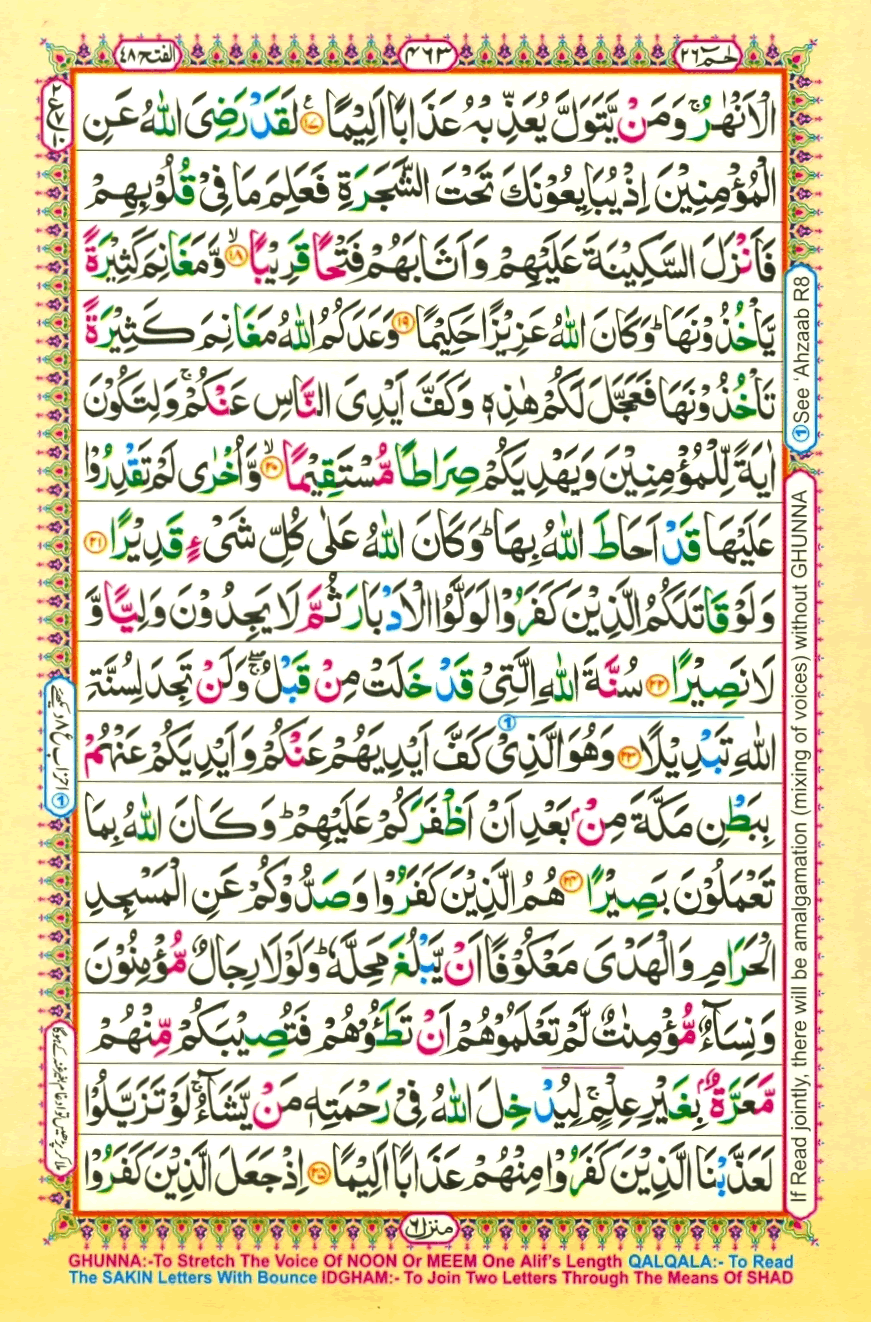 حٰمٓ ٢٦
٤٦٣
الفتح ٤٨
الْاَنْهٰرُ ۚ وَمَنْ يَّتَوَلَّ يُعَذِّبْهُ عَذَابًا اَلِيْمًا ﴿١٧﴾ لَقَدْ رَضِيَ اللّٰهُ عَنِ
الْمُؤْمِنِيْنَ اِذْ يُبَايِعُوْنَكَ تَحْتَ الشَّجَرَةِ فَعَلِمَ مَا فِيْ قُلُوْبِهِمْ
فَاَنْزَلَ السَّكِيْنَةَ عَلَيْهِمْ وَاَثَابَهُمْ فَتْحًا قَرِيْبًا ﴿١٨﴾ وَّمَغَانِمَ كَثِيْرَةً
يَّاْخُذُوْنَهَا ؕ وَكَانَ اللّٰهُ عَزِيْزًا حَكِيْمًا ﴿١٩﴾ وَعَدَكُمُ اللّٰهُ مَغَانِمَ كَثِيْرَةً
تَاْخُذُوْنَهَا فَعَجَّلَ لَكُمْ هٰذِهٖ وَكَفَّ اَيْدِيَ النَّاسِ عَنْكُمْ ۚ وَلِتَكُوْنَ
اٰيَةً لِّلْمُؤْمِنِيْنَ وَيَهْدِيَكُمْ صِرَاطًا مُّسْتَقِيْمًا ﴿٢٠﴾ وَّاُخْرٰى لَمْ تَقْدِرُوْا
عَلَيْهَا قَدْ اَحَاطَ اللّٰهُ بِهَا ؕ وَكَانَ اللّٰهُ عَلٰى كُلِّ شَيْءٍ قَدِيْرًا ﴿٢١﴾
وَلَوْ قَاتَلَكُمُ الَّذِيْنَ كَفَرُوْا لَوَلَّوُا الْاَدْبَارَ ثُمَّ لَا يَجِدُوْنَ وَلِيًّا وَّ
لَا نَصِيْرًا ﴿٢٢﴾ سُنَّةَ اللّٰهِ الَّتِيْ قَدْ خَلَتْ مِنْ قَبْلُ ۖۚ وَلَنْ تَجِدَ لِسُنَّةِ
اللّٰهِ تَبْدِيْلًا ﴿٢٣﴾ وَهُوَ الَّذِيْ كَفَّ اَيْدِيَهُمْ عَنْكُمْ وَاَيْدِيَكُمْ عَنْهُمْ
بِبَطْنِ مَكَّةَ مِنْۢ بَعْدِ اَنْ اَظْفَرَكُمْ عَلَيْهِمْ ؕ وَكَانَ اللّٰهُ بِمَا
تَعْمَلُوْنَ بَصِيْرًا ﴿٢٤﴾ هُمُ الَّذِيْنَ كَفَرُوْا وَصَدُّوْكُمْ عَنِ الْمَسْجِدِ
الْحَرَامِ وَالْهَدْيَ مَعْكُوْفًا اَنْ يَّبْلُغَ مَحِلَّهٗ ؕ وَلَوْلَا رِجَالٌ مُّؤْمِنُوْنَ
وَنِسَآءٌ مُّؤْمِنٰتٌ لَّمْ تَعْلَمُوْهُمْ اَنْ تَطَـُٔوْهُمْ فَتُصِيْبَكُمْ مِّنْهُمْ
مَّعَرَّةٌۢ بِغَيْرِ عِلْمٍ ۚ لِيُدْخِلَ اللّٰهُ فِيْ رَحْمَتِهٖ مَنْ يَّشَآءُ ۚ لَوْ تَزَيَّلُوْا
لَعَذَّبْنَا الَّذِيْنَ كَفَرُوْا مِنْهُمْ عَذَابًا اَلِيْمًا ﴿٢٥﴾ اِذْ جَعَلَ الَّذِيْنَ كَفَرُوْا
منزل ٦
① See 'Ahzaab R8
If Read jointly, there will be amalgamation (mixing of voices) without GHUNNA
GHUNNA:-To Stretch The Voice Of NOON Or MEEM One Alif's Length QALQALA:- To Read
The SAKIN Letters With Bounce IDGHAM:- To Join Two Letters Through The Means Of SHAD